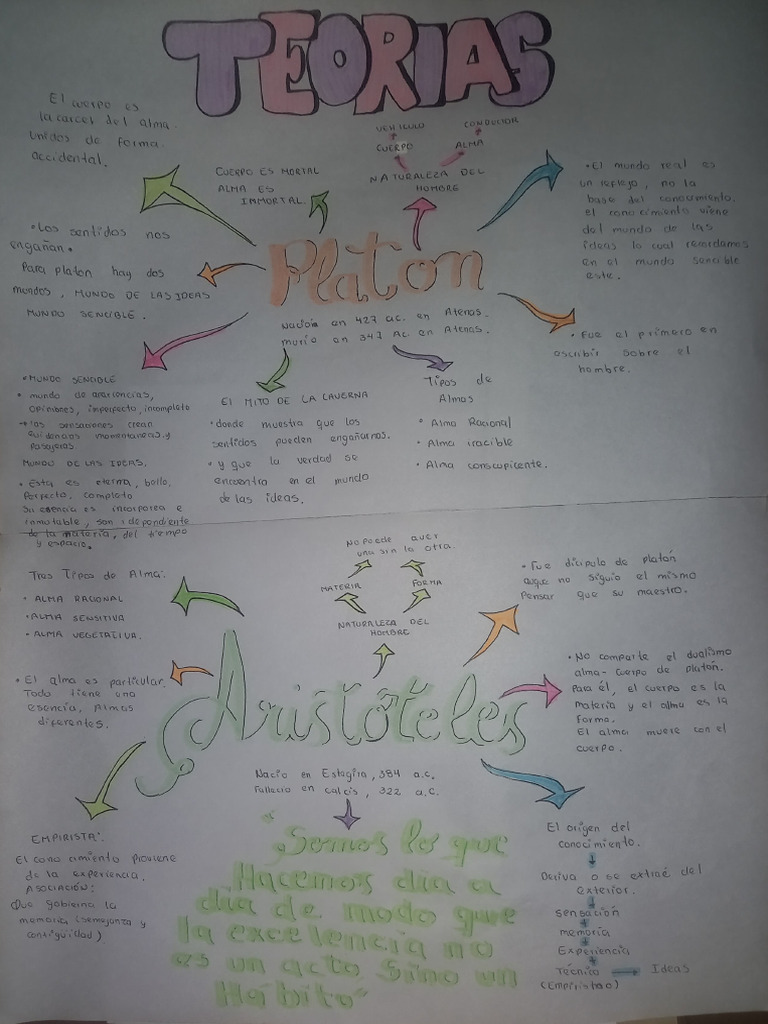 TEORIAS
El cuerpo es
la carcel del alma.
Unidos de forma
accidental.
CUERPO ES MORTAL
ALMA ES
INMORTAL.
VEHICULO CONDUCTOR
CUERPO ALMA
NATURALEZA DEL
HOMBRE
• El mundo real es
un reflejo, no la
base del conocimiento.
el conocimiento viene
del mundo de las
ideas lo cual recordamos
en el mundo sencible
este.
• Los sentidos nos
engañan.
Para platon hay dos
mundos, MUNDO DE LAS IDEAS
MUNDO SENCIBLE.
Platon
Nacio en 427 a.c. en Atenas.
murio en 347 Ac. en Atenas.
• Fue el primero en
escribir sobre el
hombre.
• MUNDO SENCIBLE
• mundo de apariencias,
opiniones, imperfecto, incompleto
• las sensaciones crean
evidencias momentaneas y
pasajeras.
MUNDO DE LAS IDEAS.
• Esta es eterna, bello,
Perfecto, completo
Su esencia es incorporea e
inmutable, son idependiente
de la materia, del tiempo
y espacio.
El MITO DE LA CAVERNA
• donde muestra que los
sentidos pueden engañarnos.
• y que la verdad se
encuentra en el mundo
de las ideas.
Tipos de
Almas
• Alma Racional
• Alma iracible
• Alma conscupicente.
Tres Tipos de Alma:
• ALMA RACIONAL
• ALMA SENSITIVA
• ALMA VEGETATIVA.
No puede aver
una sin la otra.
MATERIA FORMA
NATURALEZA DEL
HOMBRE
• Fue dicipulo de platón
auque no siguio el mismo
Pensar que su maestro.
• El alma es particular.
Todo tiene una
esencia, Almas
diferentes.
Aristóteles
• No comparte el dualismo
alma - cuerpo de platón.
Para él, el cuerpo es la
materia y el alma es la
forma.
El alma muere con el
cuerpo.
Nacio en Estagira, 384 a.c.
Fallecio en calcis, 322 a.c.
EMPIRISTA:
El conocimiento proviene
de la experiencia.
ASOCIACIÓN:
Que gobierna la
memoria (semejanza y
contiguidad).
"Somos lo que
Hacemos dia a
dia de modo que
la excelencia no
es un acto sino un
Hábito"
El origen del
conocimiento.
Deriva o se extraé del
exterior.
sensación
memoria
Experiencia
Técnica Ideas